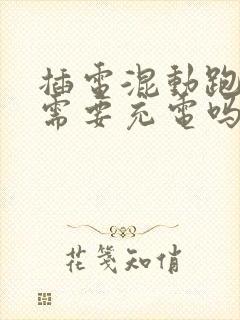 插電混動跑
需要充電嗎
花箋知俏